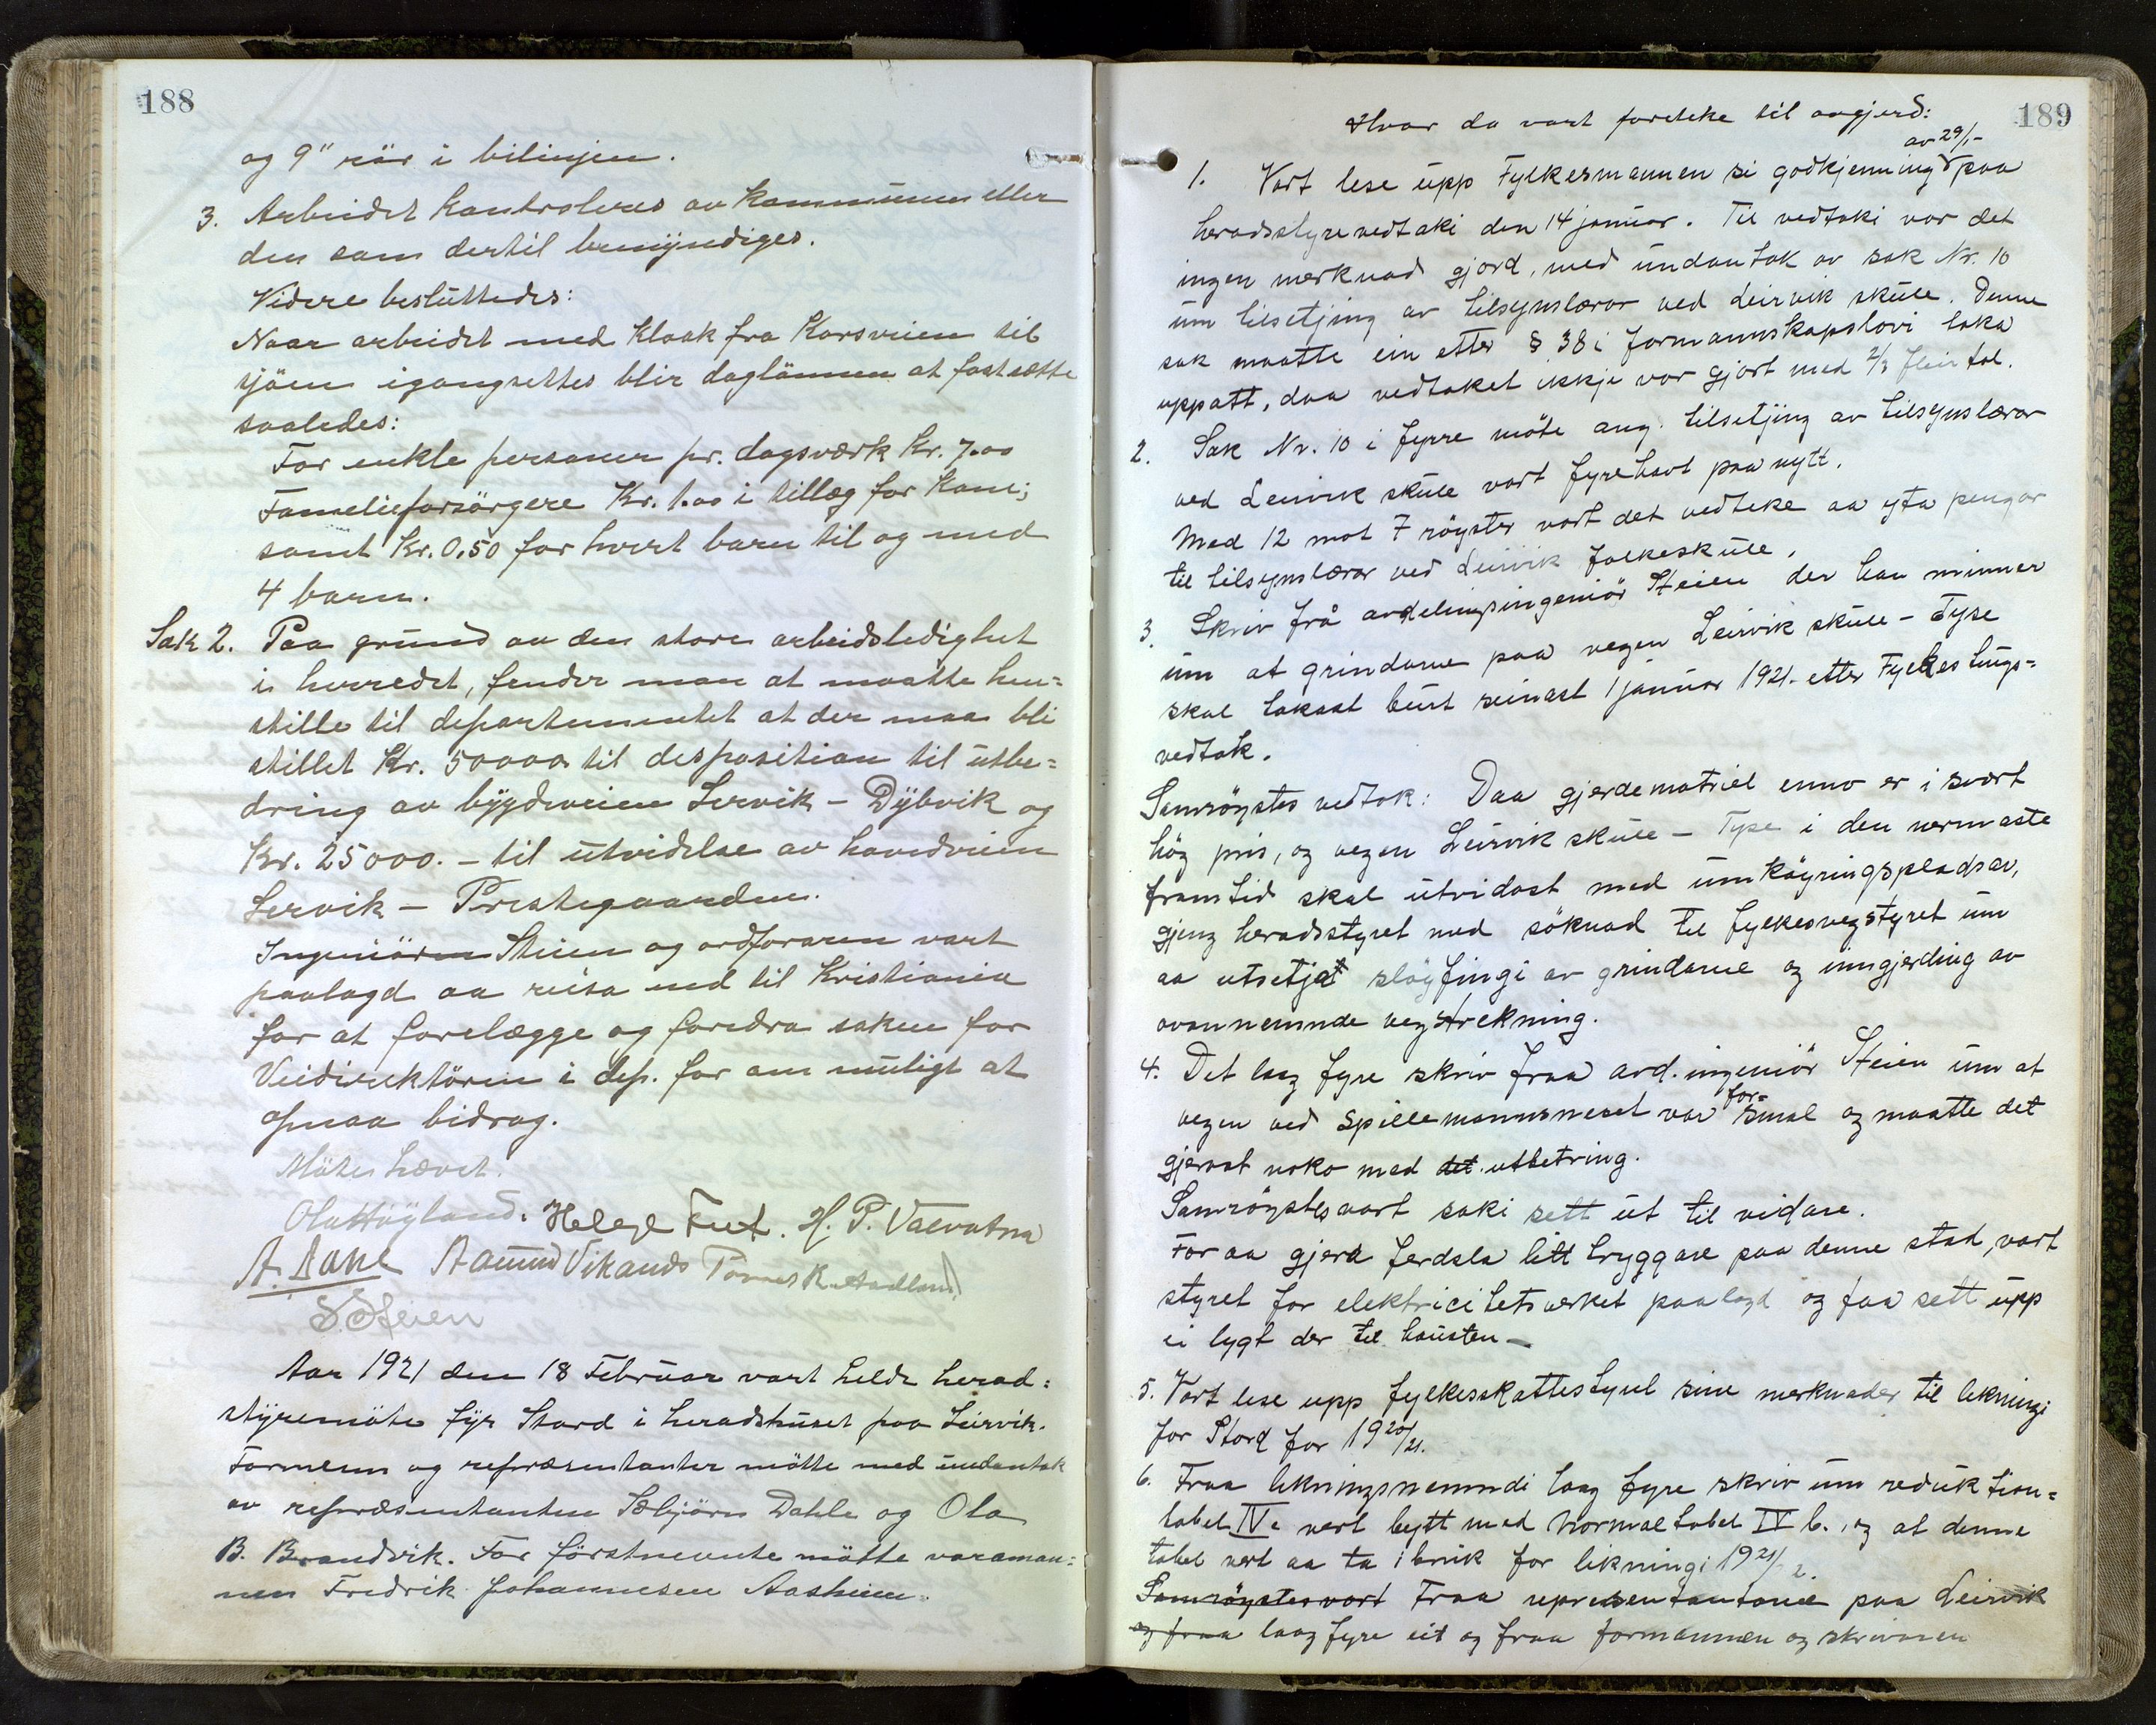 188
og 9" rör i bilinjen.
3. Arbeidet kontroleres av kommunen eller
den som dertil bemyndiges.
Videre besluttedes:
Naar arbeidet med kloak fra Korsveien til
sjöen igangsettes blir daglönnen at fastsætte
saaledes:
For enkle personer pr. dagsværk kr. 7.00
Familieforsörgere Kr. 1.00 i tillæg for kone;
samt kr. 0.50 for hvert barn til og med
4 barn.
Sak 2. Paa grund av den store arbeidsledighet
i herredet, finder man at maatte hen=
stille til departementet at der maa bli
stillet Kr. 50000. til desposition til utbe=
dring av bygdeveien Lervik - Dybvik og
Kr. 25000.- til utvidelse av hovedveien
Lervik - Prestegaarden.
Ingeniören Steien og ordföraren vart
paalagd aa reisa ned til Kristiania
for at forelægge og fordra saken for
Veidirektören i dep. for om muligt at
opnaa bidrag.
Möte hævet.
Ola Höyland. Helge Fut. H. P. Valvatna
A. Dahl Aamund Vikanes Tomes K. Aadland
S. Steien
Aar 1921 den 18 Februar vart helde herad=
styremöte fyr Stord i heradshuset paa Leirvik.
Formenn og repræsentanter mötte med undantak
av repræsentanten Sæbjörn Dahle og Ola
B. Brandvik. For förstnevnte mötte varaman=
nen Fredrik Johannesen Aasheim.
189
Hvor da vart foreteke til avgjerd:
av 29/1-
1. Vart lese upp Fylkesmannen si godkjenning paa
heradsstyrevedtaki den 14 januar. Til vedtaki var det
ingen merknad gjord, med undantak av sak Nr. 10
um tilsetjing av tilsynslærar ved Leirvik skule. Denne
sak maatte ein etter § 38 i formannskapslovi taka
uppatt, daa vedtaket ikkje var gjort med 2/3 fleirtal.
2. Sak Nr. 10 i fyrre möte ang. tilsetjing av tilsynslærar
ved Leirvik skule vart fyrehavt paa nytt.
Med 12 mot 7 röyster vart det vedteke aa yta pengar
til tilsynslærar ved Leirvik folkeskule.
3. Skriv frå avdelingsingeniör Steien der han minner
um at grindarne paa vegen Leirvik skule - Tyse
skal takast burt seinast 1 januar 1921 - etter Fylkestings=
vedtak.
Samröystes vedtok: Daa gjerdematriel enno er i svært
hög pris, og vegen Leirvik skule - Tyse i den nermaste
framtid skal utvidast med umköyringspladsar,
gjeng heradsstyret med söknad til fylkesvegstyret um
aa utsetja sløyfingi av grindarne og inngjerding av
ovannemnde vegstrekning.
4. Det laag fyre skriv fraa avd. ingeniör Steien um at
vegen ved Spillemannsneset var for= smal og maatte det
gjerast noko med det utbetring.
Samröystes vart saki sett ut til vidare.
For aa gjera ferdsla litt tryggare paa denne stad, vart
styret for elektricitetsverket paalagd og faa sett upp
ei lygt der til hausten -
5. Vart lese upp fylkesskattestyret sine merknader til likningi
for Stord for 1920/21.
6. Fraa likningsnemndi laag fyre skriv um reduktion=
tabel IVa vert bytt med Normaltabel IV b., og at denne
tabel vert aa ta i bruk for likningi 1921/2.
Samröystes vart Fraa representantane paa Leirvik
og fraa laag fyre eit og fraa formannen og skrivaren